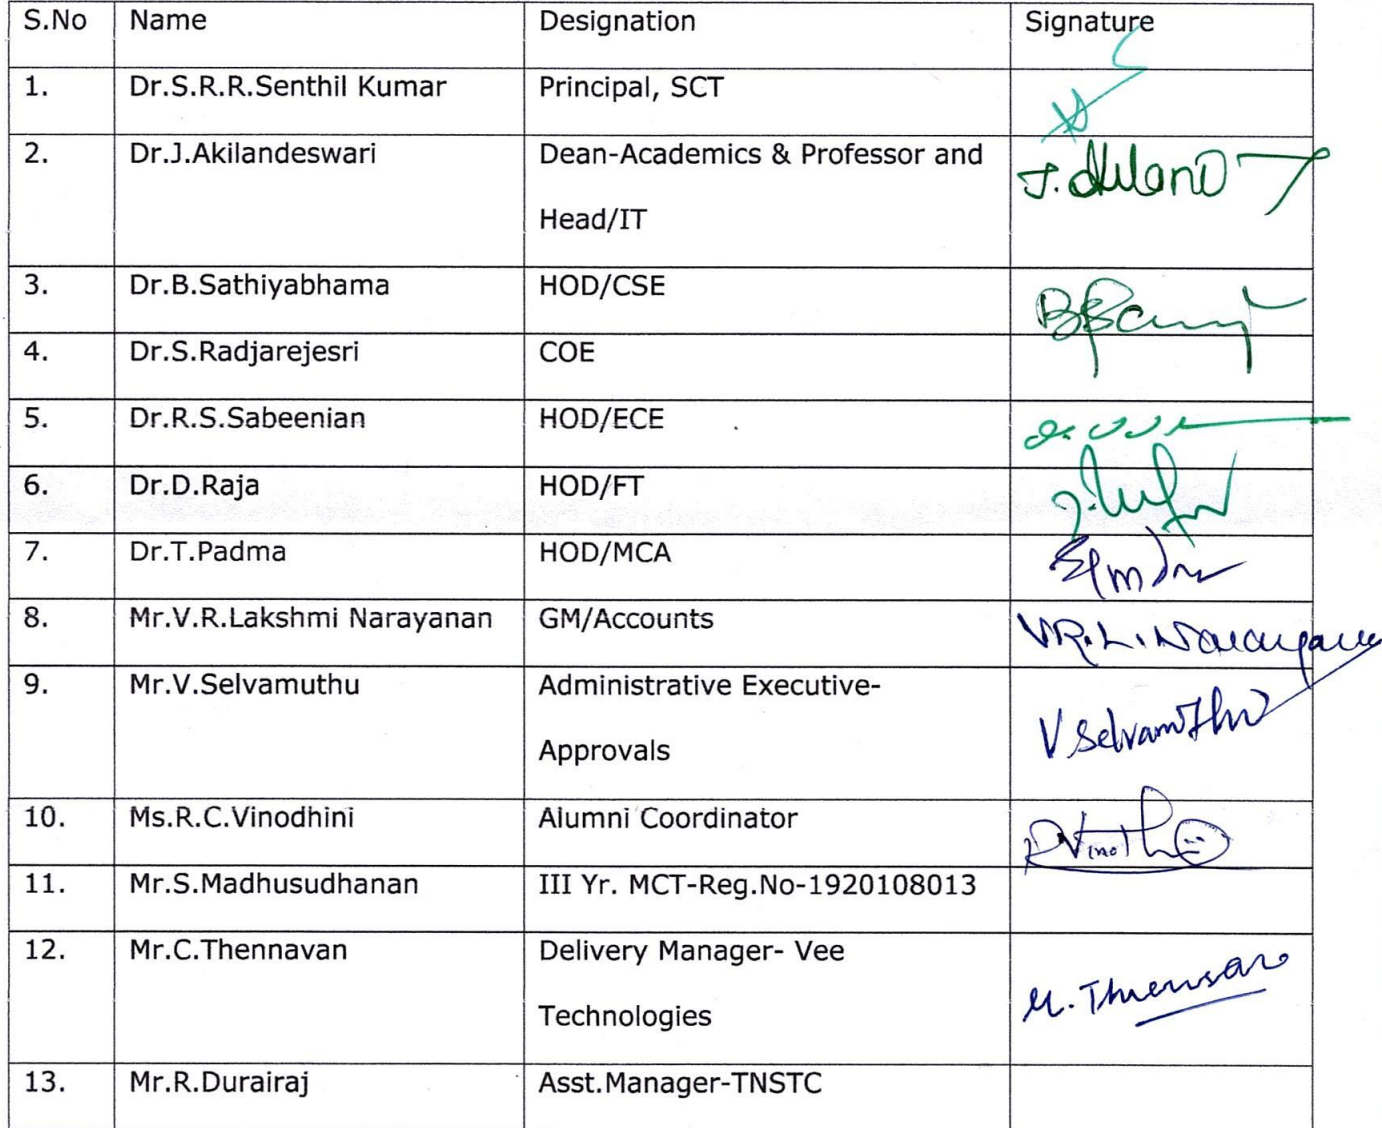 S.No Name Designation Signature
1. Dr.S.R.R.Senthil Kumar Principal, SCT
2. Dr.J.Akilandeswari Dean-Academics & Professor and
Head/IT
3. Dr.B.Sathiyabhama HOD/CSE
4. Dr.S.Radjarejesri COE
5. Dr.R.S.Sabeenian HOD/ECE
6. Dr.D.Raja HOD/FT
7. Dr.T.Padma HOD/MCA
8. Mr.V.R.Lakshmi Narayanan GM/Accounts
9. Mr.V.Selvamuthu Administrative Executive-
Approvals
V Selvamuthu
10. Ms.R.C.Vinodhini Alumni Coordinator
11. Mr.S.Madhusudhanan III Yr. MCT-Reg.No-1920108013
12. Mr.C.Thennavan Delivery Manager- Vee
Technologies
13. Mr.R.Durairaj Asst.Manager-TNSTC